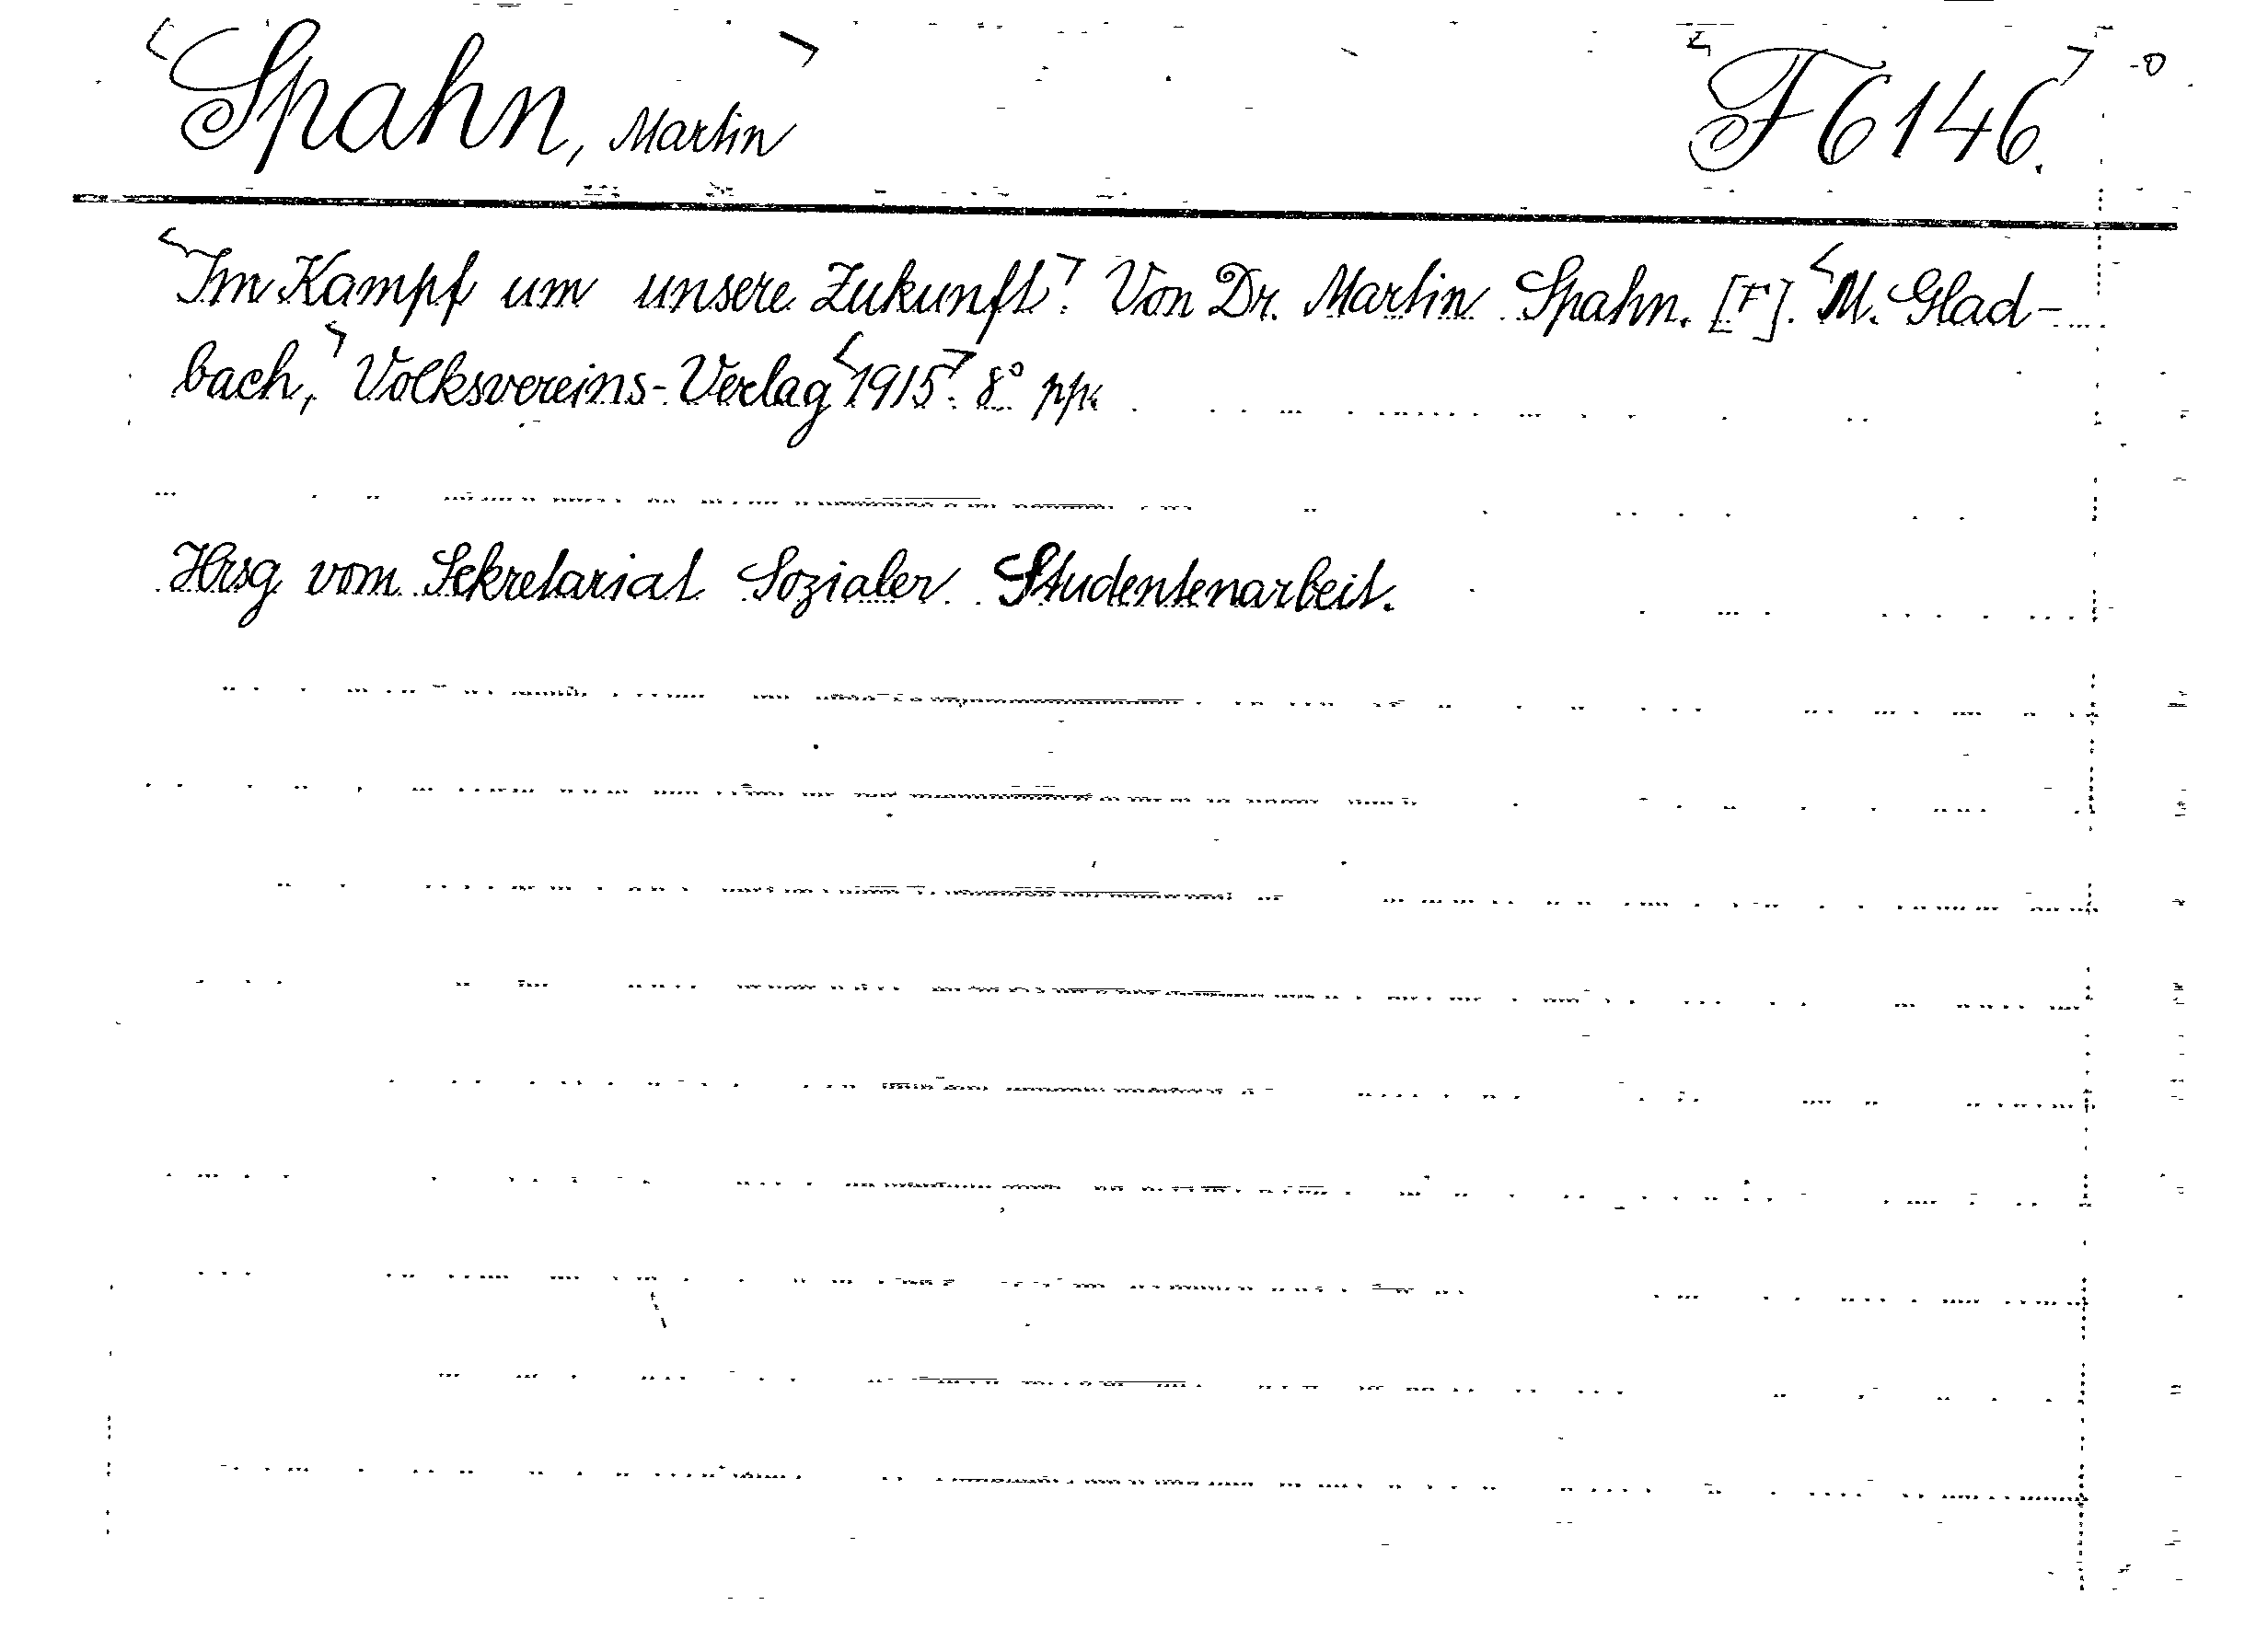 <Spahn, Martin> <F6146.>
<Im Kampf um unsere Zukunft>. Von Dr. Martin Spahn. [F]. <M. Glad-
bach,> Volksvereins-Verlag <1915>. 8° pp.
Hrsg vom Sekretariat Sozialer Studentenarbeit.